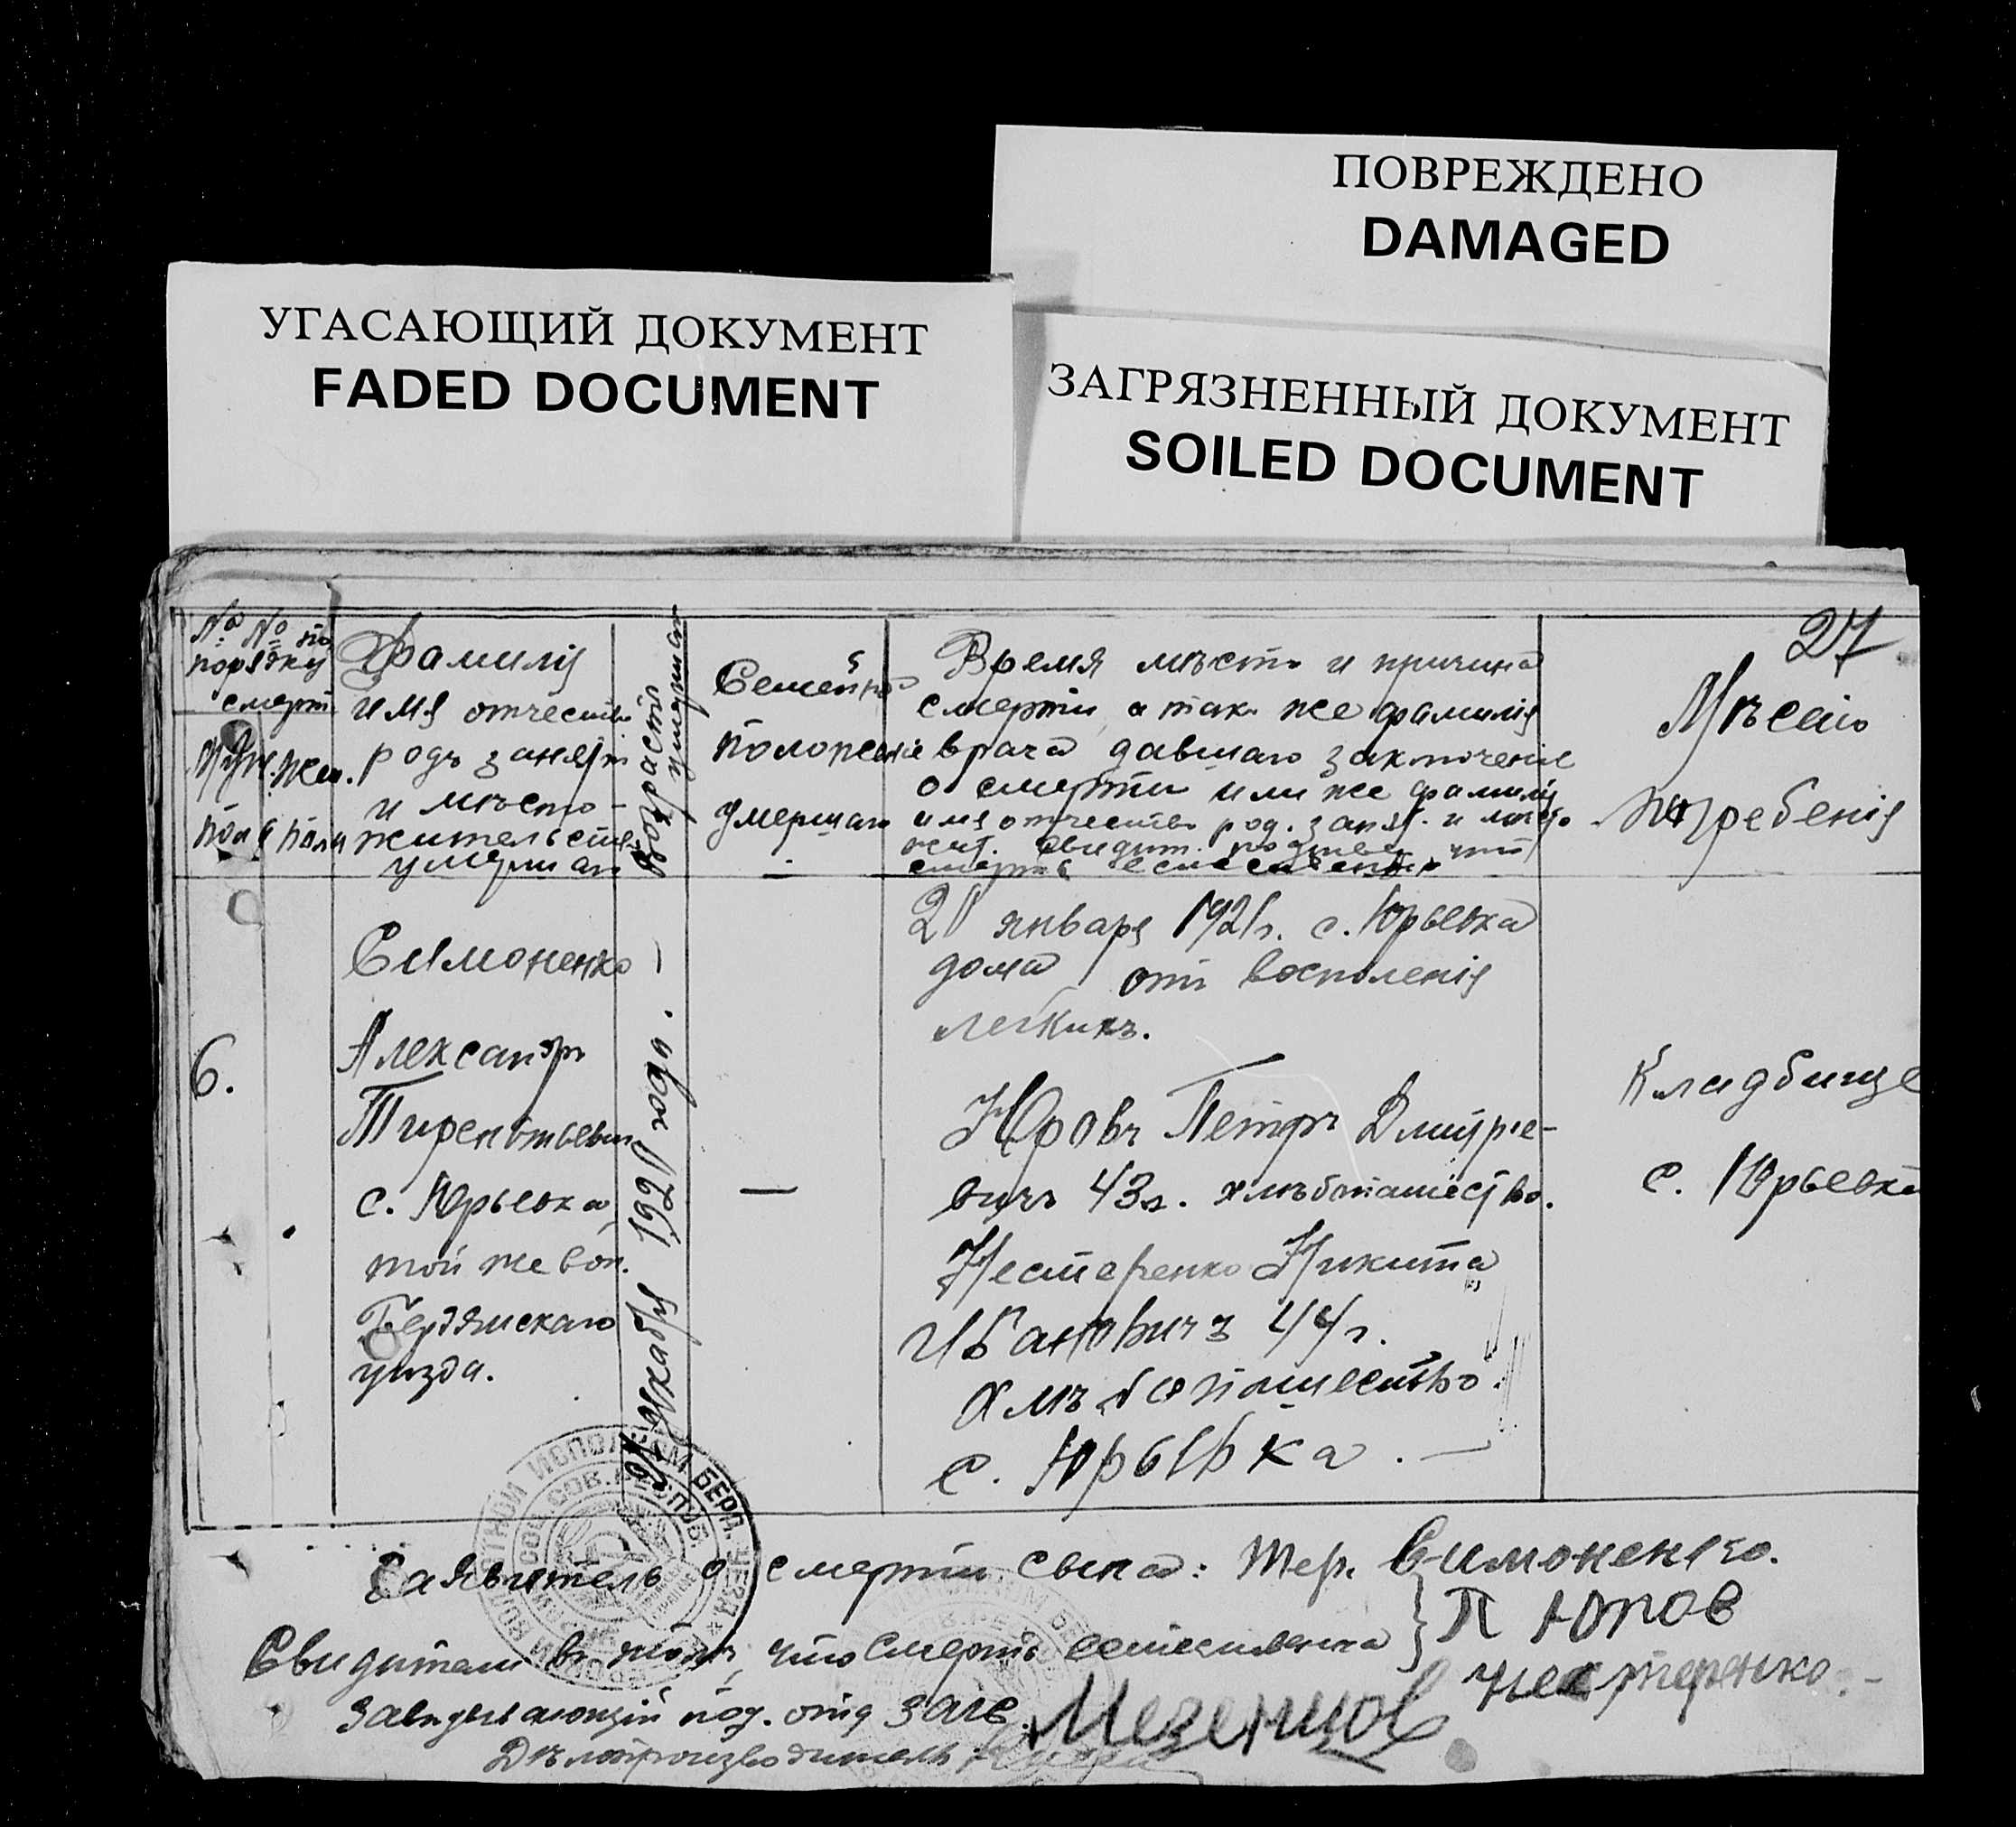 ПОВРЕЖДЕНО
DAMAGED
УГАСАЮЩИЙ ДОКУМЕНТ
FADED DOCUMENT
ЗАГРЯЗНЕННЫЙ ДОКУМЕНТ
SOILED DOCUMENT
27
№ № по
порядку
смерт.
Муж. Жен.
пола пола
Фамилія
имя отчество
родъ занят.
и мѣсто-
жительства
умершаго
Возрастъ умершаго
Семейное
положеніе
умершаго
Время мѣсто и причина
смерти а так же фамилія
врача давшаго заключеніе
о смерти или же фамилія
имя отчество род. занят. и место
жит. свидет.
смерть естественна
Мѣсто
погребенія
6.
Симоненко
Александръ
Тирентьевич
с. Юрьевка
той же вол.
Бердянскаго
уизда.
21 декабря 1920 года. —
—
21 января 1921г. с. Юрьевка
дома от восполенія
легкихъ.
Юровъ Петръ Дмитріе-
вичъ 43г. хлѣбопашество.
Нестеренко Никита
Ивановичъ 44г.
хлѣбопашество.
с. Юрьевка. —
Кладбище
с. Юрьевка
Заявитель о смерти сына: Тер. Симоненко.
Свидители в том, что смерть естественна } П Юров
Нестеренко. -
Завидывающій под. отд ЗАГС. Мезенцов
Дѣлопроизводитель
ВОЛОСТНОЙ ИСПОЛКОМ БЕРД. УЕЗД.